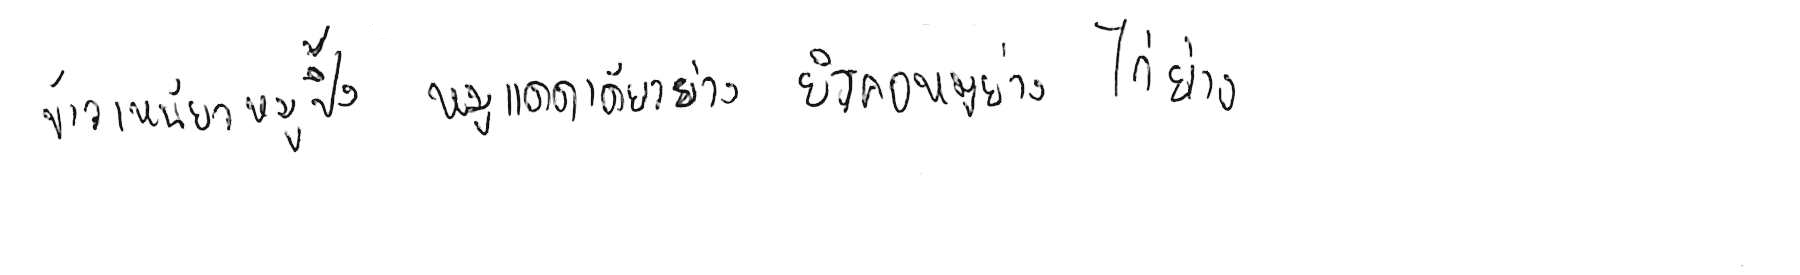 ข้าวเหนียวหมูปิ้ง หมูแดดเดียวย่าง ยิรคอหมูย่าง ไก่ย่าง